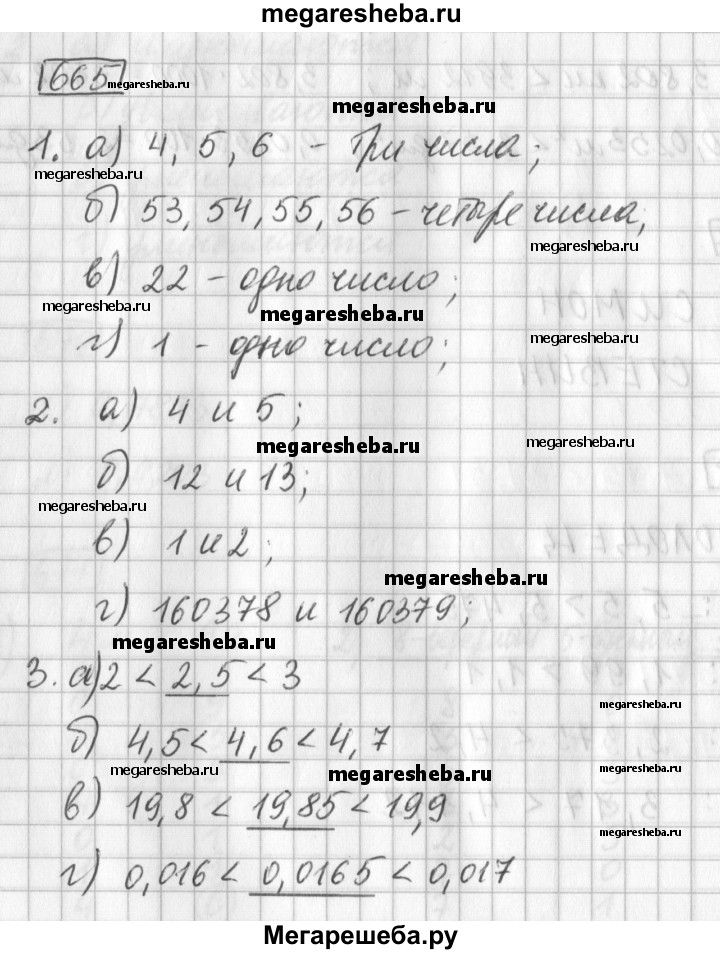 megaresheba.ru
665 megaresheba.ru
megaresheba.ru
1. а) 4, 5, 6 - три числа;
megaresheba.ru
б) 53, 54, 55, 56 - четыре числа;
megaresheba.ru
в) 22 - одно число;
megaresheba.ru
megaresheba.ru
г) 1 - одно число;
megaresheba.ru
2. а) 4 и 5;
megaresheba.ru
megaresheba.ru
б) 12 и 13;
megaresheba.ru
в) 1 и 2;
megaresheba.ru
г) 160378 и 160379;
megaresheba.ru
3. а) 2 < 2,5 < 3
megaresheba.ru
б) 4,5 < 4,6 < 4,7
megaresheba.ru
megaresheba.ru
megaresheba.ru
в) 19,8 < 19,85 < 19,9
megaresheba.ru
г) 0,016 < 0,0165 < 0,017
Мегарешеба.ру